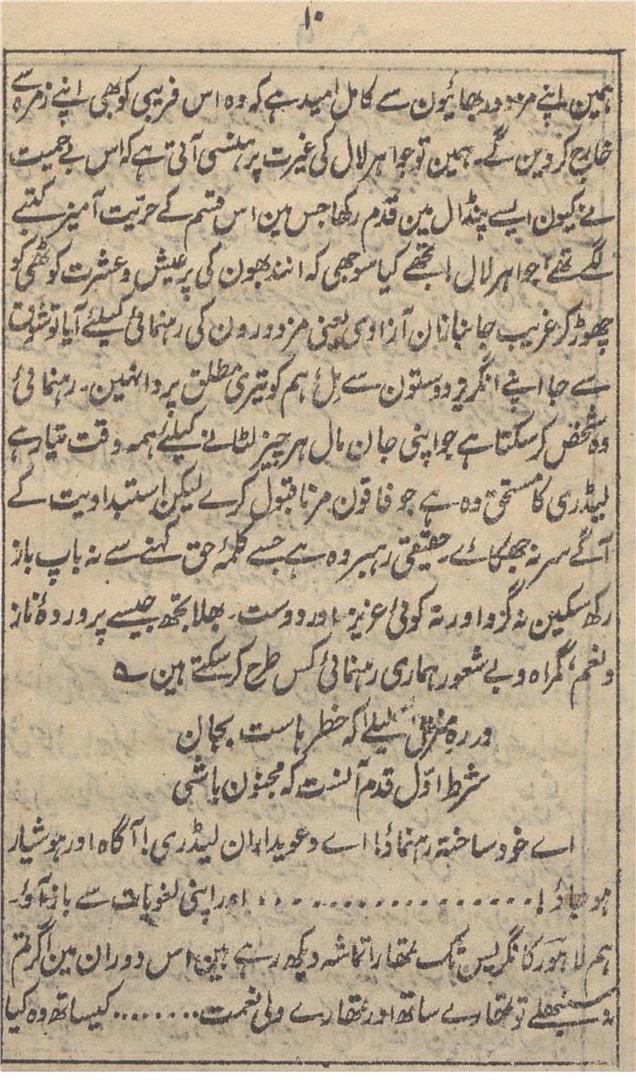 ۱۰
ہمین اپنے مزدور بھائیون سے کامل امید ہے کہ وہ اس فریبی کو بھی اپنے زمرہ سے
خارج کر دین گے۔ ہمین تو جواہر لال کی غیرت پر ہنسی آتی ہے کہ اس بے حمیت
نے کیون ایسے پنڈال مین قدم رکھا جس مین اس قسم کے حریت آمیز کتبے
لگے تھے، جواہر لال! تجھے کیا سوجھی کہ انند بھون کی پر عیش و عشرت کوٹھی کو
چھوڑ کر غریب جانبازان آزادی یعنی مزدورون کی رہنمائی کیلئے آیا تو شوق
سے جا اپنے انگریز دوستون سے مِل ہم کو تیری مطلق پروا نہین۔ رہنمائی
وہ شخص کر سکتا ہے جو اپنی جان مال ہر چیز لٹانے کیلئے ہمہ وقت تیار ہے
لیڈری کا مستحق وہ ہے جو فاقون مرنا قبول کرے لیکن استبدادیت کے
آگے سر نہ جھکائے حقیقی رہبر وہ ہے جسے کلمۂ حق کہنے سے نہ باپ باز
رکھ سکین نہ گرو اور نہ کوئی عزیز اور دوست۔ بھلا تجھ جیسے پروردۂ ناز
و نعم، گمراہ و بے شعور ہماری رہنمائی کس طرح کر سکتے ہین ؎
در رہ منزل لیلےٰ کہ خطر ہاست بجان
شرط اوّل قدم آنست کہ مجنون باشی
اے خود ساختہ رہنماؤ! اے دعویداران لیڈری! آگاہ اور ہوشیار
ہو جاؤ! ................ اور اپنی لغویات سے باز آؤ۔
ہم لاہور کانگریس تک تمھارا تماشہ دیکھ رہے ہین، اس دوران مین اگر تم
نہ سنبھلے تو تمھارے ساتھ اور تمھارے ولی نعمت ........ کیساتھ وہ کیا